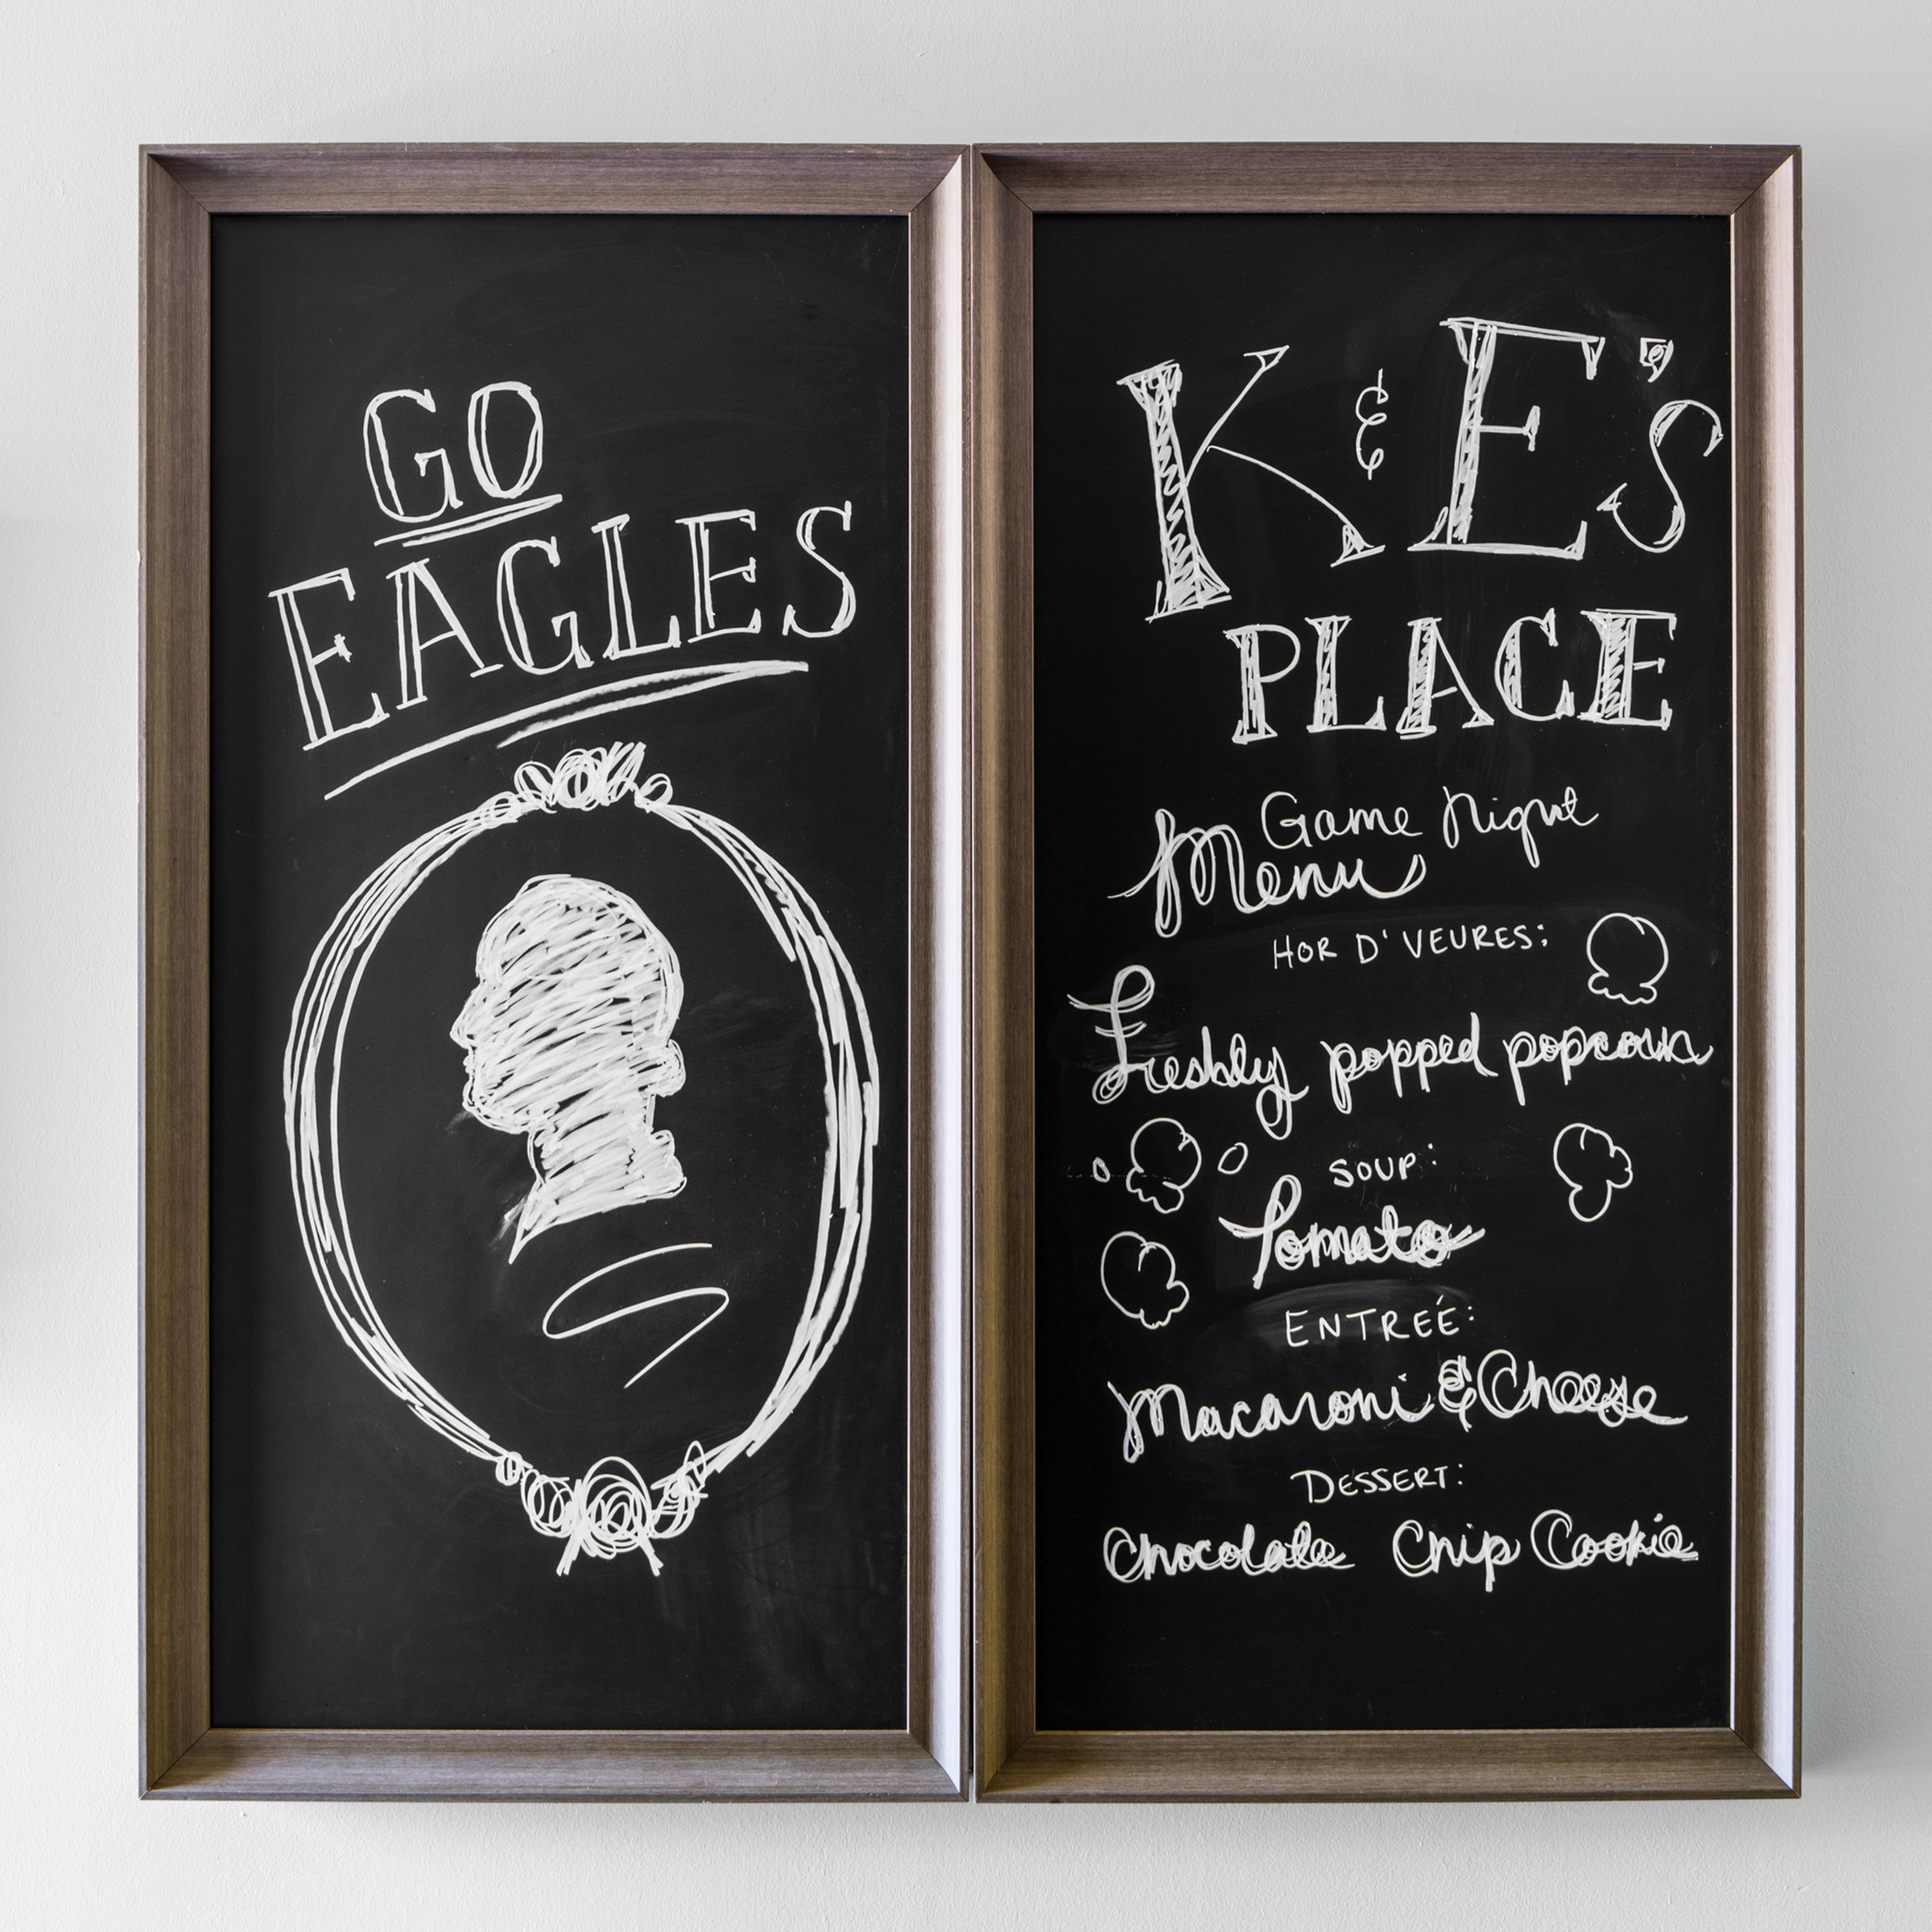 GO
EAGLES
K & E's
PLACE
Game Night
Menu
HOR D'VEURES:
Freshly popped popcorn
SOUP:
Tomato
ENTREÉ:
Macaroni & Cheese
DESSERT:
Chocolate Chip Cookie